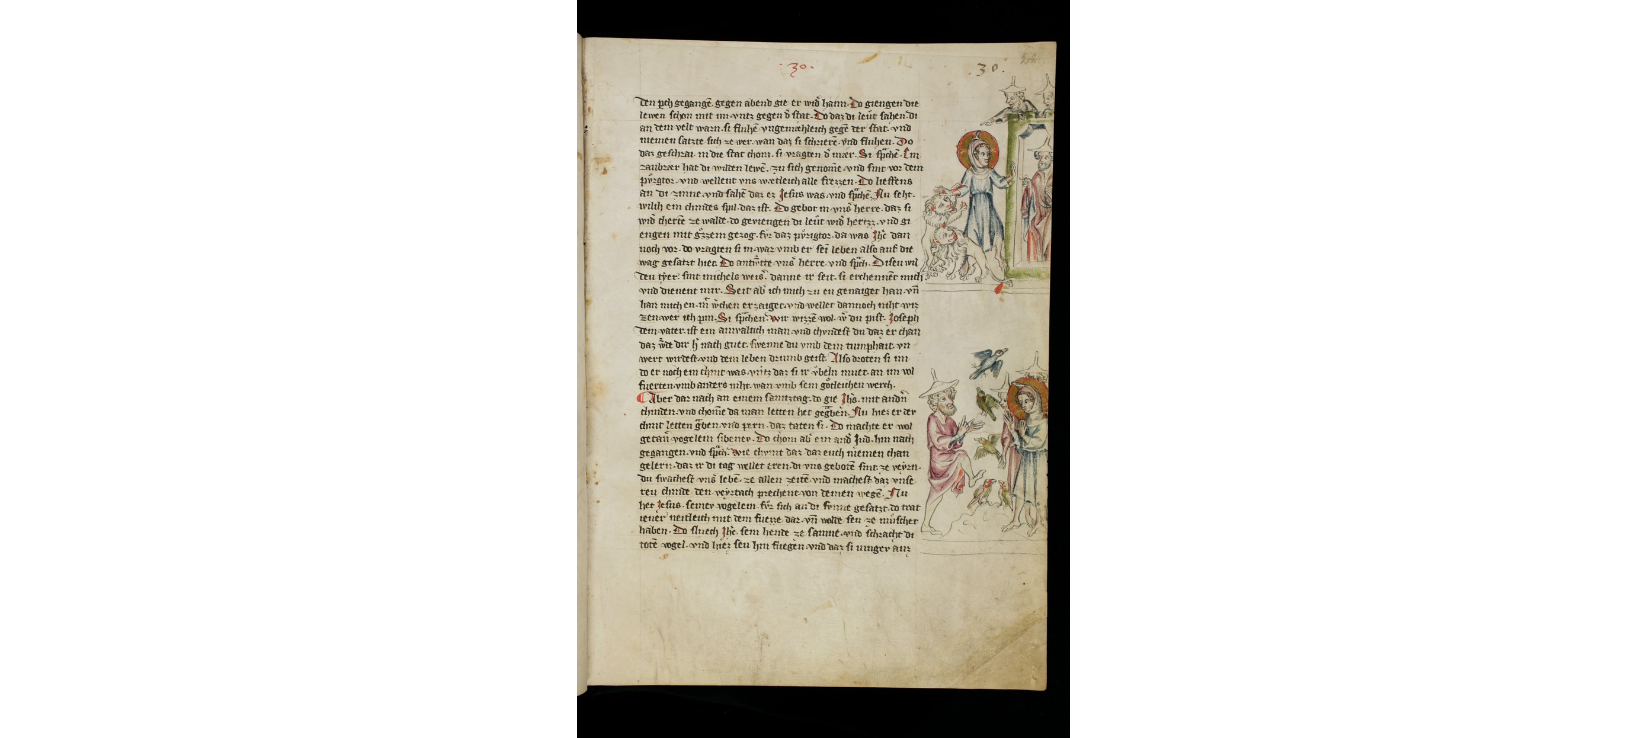 ·30·
·30·
den pch gegangē. gegen abend gie er wid̾ haim. Do giengen die
lewen schon mit im vntz gegen d̾ stat. Do daz di leüt sahen di
an dem velt warn. si fluhē vngemechleich gegē der stat. vnd
niemen satzte sich ze wer. wan daz si schrierē. vnd fluhen. Do
daz geschrai in die stat chom. si vragten d̾ mær. Si sp̾chē. Ein
zaubrær hat di wilden lewē. zu sich genomē. vnd sint vor dem
pv̈rgtor. vnd wellent vns wætleich alle frezzen. Do lieffens
an di zinne. vnd sahē daz ez Jesus was. vnd sp̾chē. Nu seht.
wilch ein chindes spil. daz ist. Do gebot in vns̾ herre. daz si
wid̾ cherē ze walde. do geviengen di leüt wid̾ hertz. vnd gi
engen mit gz̾zem gezog. fv̈r daz pv̈rigtor. da was Jhē dan
noch vor. do vragten si in. war vmb er sei leben also auf die
wag gesatzt hiet. Do antw̾tte vns̾ herre. vnd sp̾ch. Disen wil
den tyer. sint michels weis̾. danne ir seit. si erchennēt mich
vnd dienent mir. Seit ab̾ ich mich zu eu genaiget han. vn̄
han mich en m̾ w̾chen erzaiget. vnd wellet dannoch niht wiz
zen wer ich pin. Si sp̾chen. wir wizzē wol. w̾ du pist. Joseph
dein vater. ist ein ainvaltich man. vnd chundest du daz er chan
daz w̾de dir h̾ nach guet. swenne du vmb dein tumphait. vn
wert wirdest. vnd dem leben drumb geist. Also droten si im
do er noch ein chint was. vntz daz si ir v̈beln muet. an im vol
fuerten. vmb anders niht. wan vmb sein götleichen werch.
Aber dar nach an einem samtztag. do gie Jhs. mit andn̾
chinden. vnd chomē da man letten het gegͣben. Nu hiez er der
chint letten gͣben. vnd pern. daz taten si. Do machte er wol
getan vogelein sibenev. Do chom ab̾ ein and̾ Jud. hin nach
gegangen. vnd sp̾ch. wie chvmt daz. daz euch niemen chan
gelern. daz ir di tag wellet eren. di vns gebotē sint. ze veyrn.
du swachest vns̾ lebē. ze allen zeitē. vnd machest daz vnse
reu chinde. den veyrtach prechent. von deinen wegē. Nu
het Jesus. seinev vogelein. fv̈r sich an di svnne gesatzt. do trat
iener neitleich mit dem fuezze dar. vn̄ wolde seu ze müschet
haben. Do sluech Jhē. sein hende ze samne. vnd schracht di
totē vogel. vnd hiez seu hin fliegen. vnd daz si ninger auz